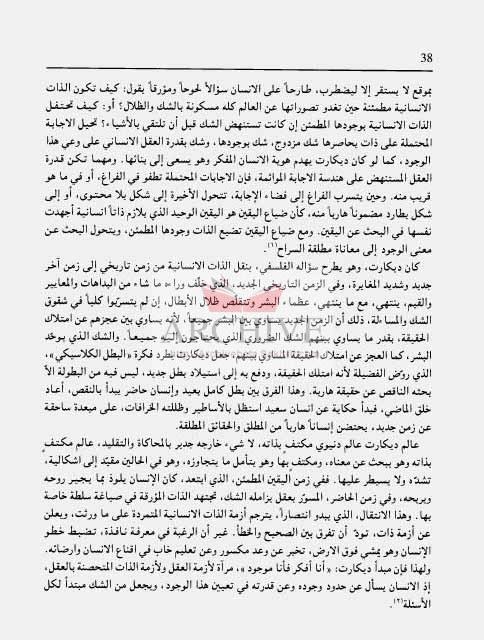 38
بموقع لا يستقر إلا ليضطرب، طارحاً على الانسان سؤالاً لحوحاً ومؤرقاً يقول: كيف تكون الذات
الانسانية مطمئنة حين تغدو تصوراتها عن العالم كله مسكونة بالشك والظلال؟ أو: كيف تحتفل
الذات الانسانية بوجودها المطمئن إن كانت تستنهض الشك قبل أن تلتقي بالأشياء؟ تحيل الاجابة
المحتملة على ذات يحاصرها شك مزدوج، شك بوجودها، وشك بقدرة العقل الانساني على وعي هذا
الوجود، كما لو كان ديكارت يهدم هوية الانسان المفكر وهو يسعى إلى بنائها. ومهما تكن قدرة
العقل المستنهض على هندسة الاجابة الموائمة، فإن الاجابات المحتملة تطفو في الفراغ، أو في ما هو
قريب منه. وحين يتسرب الفراغ إلى فضاء الإجابة، تتحول الأخيرة إلى شكل بلا محتوى، أو إلى
شكل يطارد مضموناً هارباً منه، كأن ضياع اليقين هو اليقين الوحيد الذي يلازم ذاتاً انسانية أجهدت
نفسها في البحث عن اليقين. ومع ضياع اليقين تضيع الذات وجودها المطمئن، ويتحول البحث عن
معنى الوجود إلى معاناة مطلقة السراح(١).
كان ديكارت، وهو يطرح سؤاله الفلسفي، ينقل الذات الانسانية من زمن تاريخي إلى زمن آخر
جديد وشديد المغايرة، وفي الزمن التاريخي الجديد، الذي خلّف وراءه ما شاء من البداهات والمعايير
والقيم، ينتهي، مع ما ينتهي، عظماء البشر وتتقلّص ظلال الأبطال، إن لم يتسرّبوا كلياً في شقوق
الشك والمساءلة، ذلك أن الزمن الجديد يساوي بين البشر جميعاً، لأنه يساوي بين عجزهم عن امتلاك
الحقيقة، بقدر ما يساوي بينهم الشك الضروري الذي يحتاجون إليه جميعاً. والشك الذي يوحّد
البشر، كما العجز عن امتلاك الحقيقة المساوي بينهم، جعل ديكارت يطرد فكرة «البطل الكلاسيكي»،
الذي روّض الفضيلة لأنه امتلك الحقيقة، ودفع به إلى استيلاد بطل جديد، ليس فيه من البطولة الا
بحثه الناقص عن حقيقة هاربة. وهذا الفرق بين بطل كامل بعيد وإنسان حاضر يبدأ بالنقص، أعاد
خلق الماضي، فبدأ حكاية عن انسان سعيد استظل بالأساطير وظللته الخرافات، على مبعدة ساحقة
عن زمن جديد، يحتضن إنساناً هارباً من المطلق والحقائق المطلقة.
عالم ديكارت عالم دنيوي مكتفٍ بذاته، لا شيء خارجه جدير بالمحاكاة والتقليد، عالم مكتفٍ
بذاته وهو يبحث عن معناه، ومكتفٍ بها وهو يتأمل ما يتجاوزه، وهو في الحالين مقيّد إلى اشكالية،
تشدّه ولا يسيطر عليها. ففي زمن اليقين المطمئن، الذي ابتعد، كان الإنسان يلوذ بما يجير روحه
ويريحه، وفي زمن الحاضر، المسوّر بعقل يزامله الشك، تجتهد الذات المؤرقة في صياغة سلطة خاصة
بها. وهذا الانتقال، الذي يبدو انتصاراً، يترجم أزمة الذات الانسانية المتمردة على ما ورثت، ويعلن
عن أزمة ذات، تودّ أن تفرق بين الصحيح والخطأ. غير أن الرغبة في معرفة نافذة، تضبط خطو
الإنسان وهو يمشي فوق الارض، تخبر عن وعد مكسور وعن تعليم خاب في اقناع الانسان وارضائه.
ولهذا فإن مبدأ ديكارت: «أنا أفكر فأنا موجود»، مرآة لأزمة العقل ولأزمة الذات المتحصنة بالعقل،
إذ الانسان يسأل عن حدود وجوده وعن قدرته في تعيين هذا الوجود، ويجعل من الشك مبتدأ لكل
الأسئلة(٢).
ARCHIVE